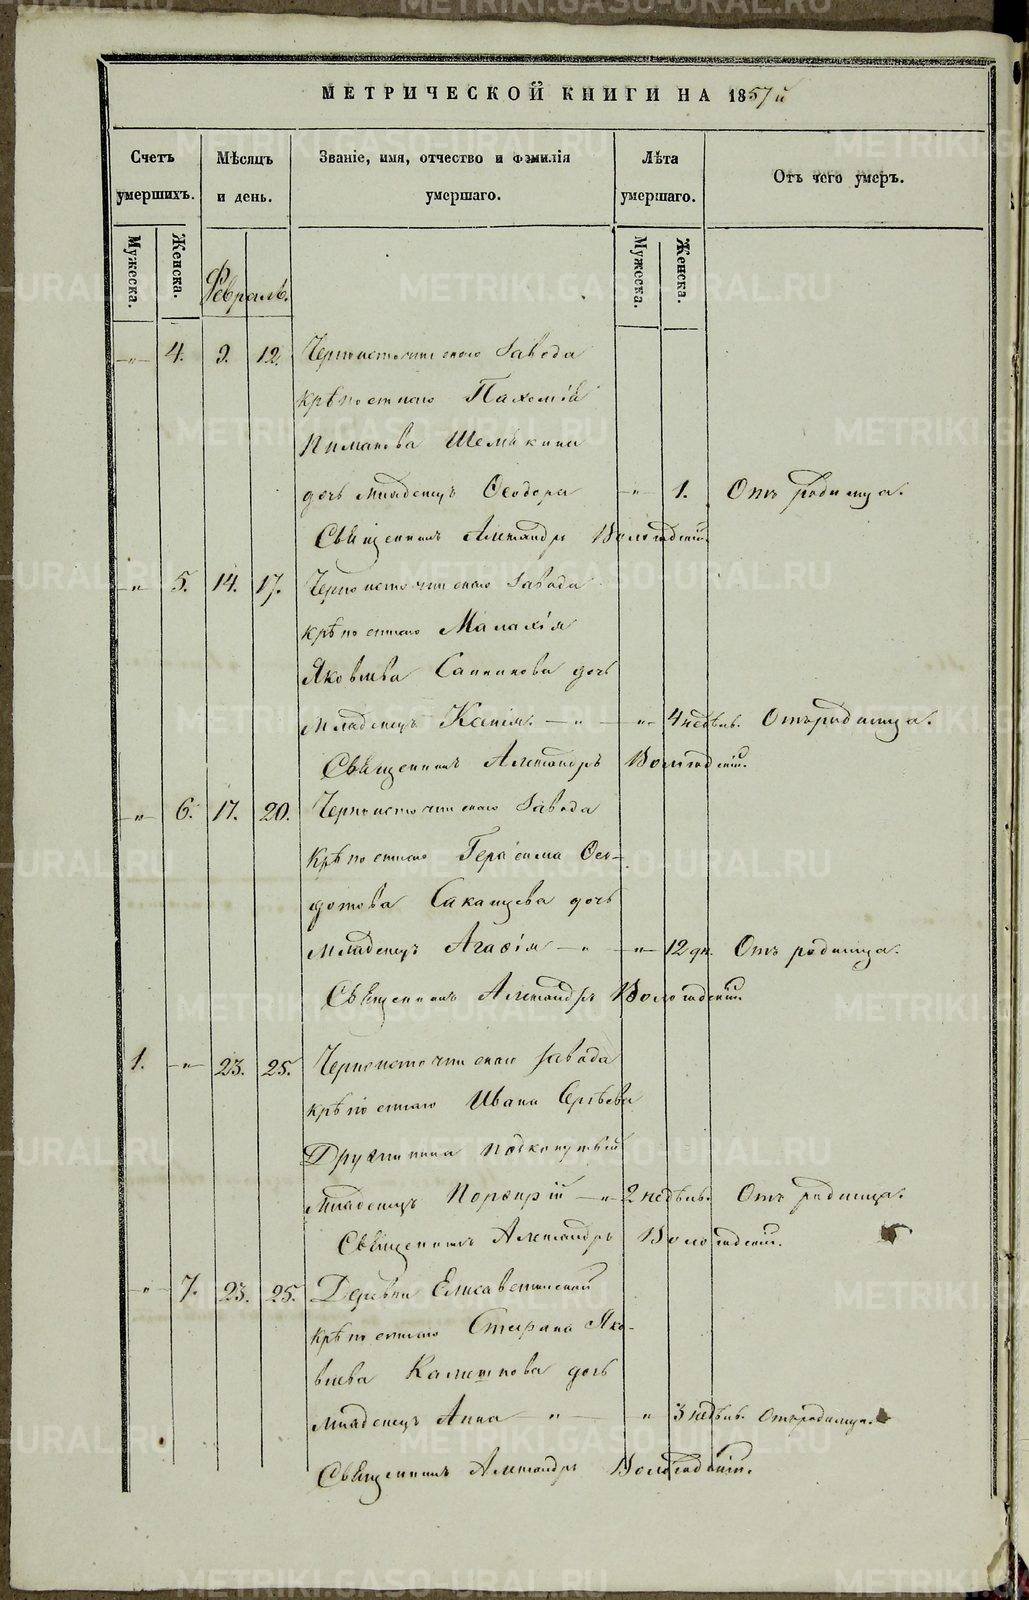 МЕТРИЧЕСКОЙ КНИГИ НА 1857й
Счетъ умершихъ.
Мѣсяцъ и день.
Званіе, имя, отчество и фамилія умершаго.
Лѣта умершаго.
Отъ чего умеръ.
Мужеска.
Женска.
Мужеска.
Женска.
Февраль.
-"- 4. 9. 12. Черноисточинскаго Завода
крѣпостнаго Пахомій
Шемякина
дочь младенецъ Ѳеодора -"- 1. Отъ родимца.
Священникъ Александръ Вологодскій.
-"- 5. 14. 17. Черноисточинскаго Завода
крѣпостнаго Малахія
Яковлева Санникова дочь
младенецъ Ксенія. -"- -"- 4 недѣль. Отъ родимца.
Священникъ Александръ Вологодскій.
-"- 6. 17. 20. Черноисточинскаго Завода
крѣпостнаго Герасима Ѳео-
дотова Саканцева дочь
младенецъ Агафія -"- -"- 12 дн. Отъ родимца.
Священникъ Александръ Вологодскій.
1. -"- 23. 25. Черноисточинскаго завода
крѣпостнаго Ивана Сергѣева
Дружинина подкопутвій
младенецъ Порфирій -"- 2 недѣль. Отъ родимца.
Священникъ Александръ Вологодскій.
-"- 7. 23. 25. Деревни Елисаветинской
крѣпостнаго Стефана Яко-
влева Калашкова дочь
младенецъ Анна -"- " 3 недѣль. Отъ родимца.
Священникъ Александръ Вологодскій.
METRIKI.GASO-URAL.RU